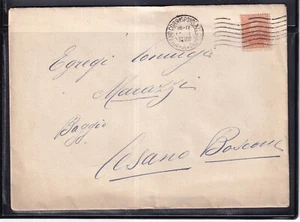 Egregi Coniugi
Marazzi
Baggio
Cesano Boscone